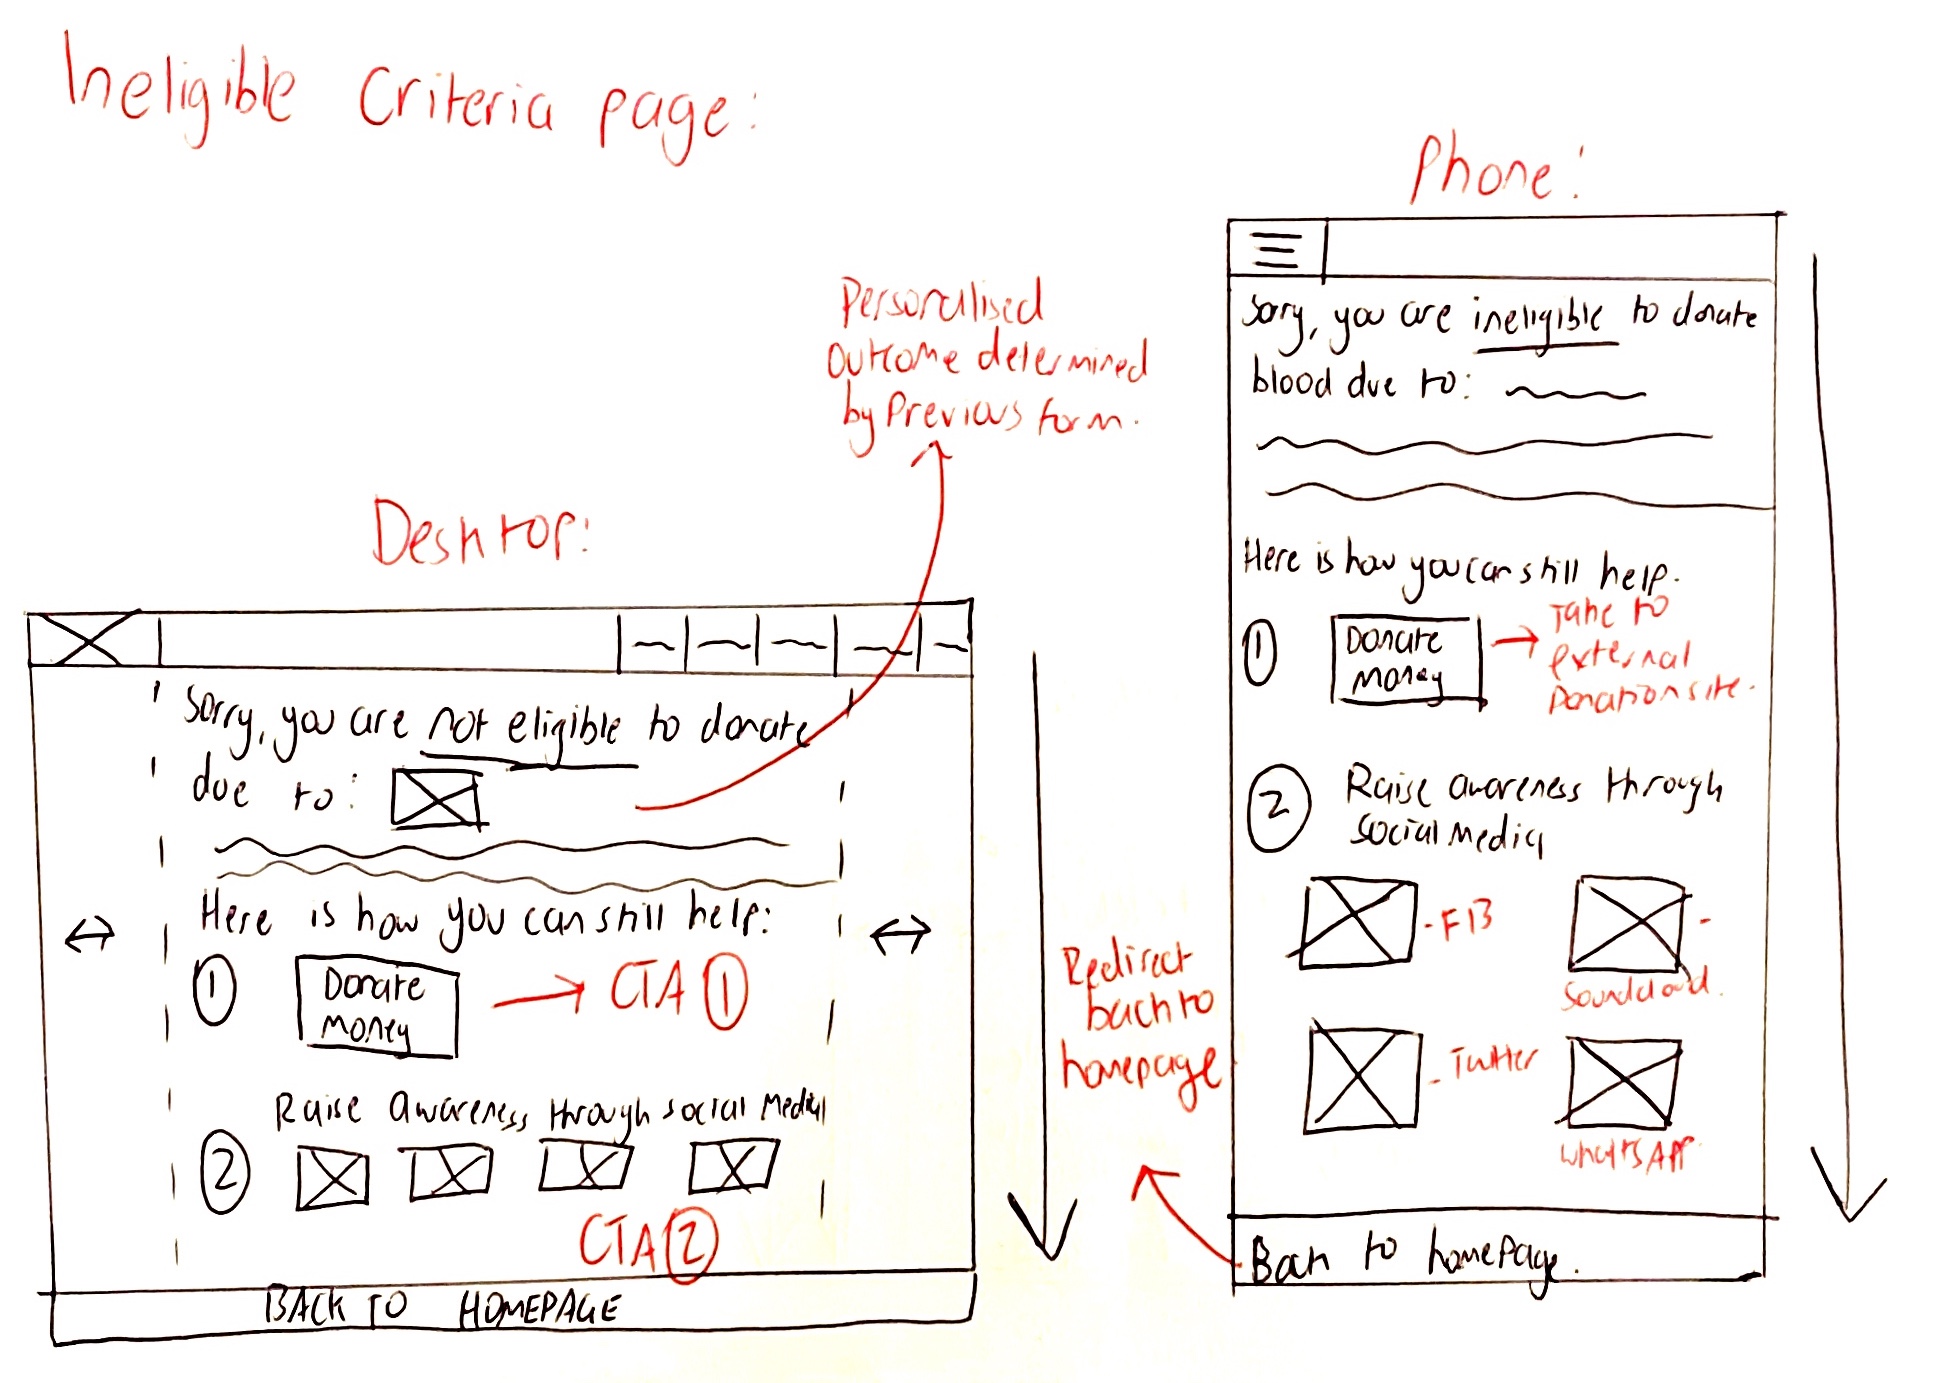 Ineligible Criteria page:
Phone:
Personalised
outcome determined
by Previous form.
Desktop:
Sorry, you are not eligible to donate
due to:
Here is how you can still help:
1
Donate
money
CTA 1
Raise awareness through social media
2
CTA 2
BACK TO HOMEPAGE
Redirect
back to
homepage
Sorry, you are ineligible to donate
blood due to:
Here is how you can still help.
1
Donate
money
Take to
external
Donation site.
2
Raise awareness through
social media
- FB
-
Soundcloud.
- Twitter
whatsApp
Back to homepage.